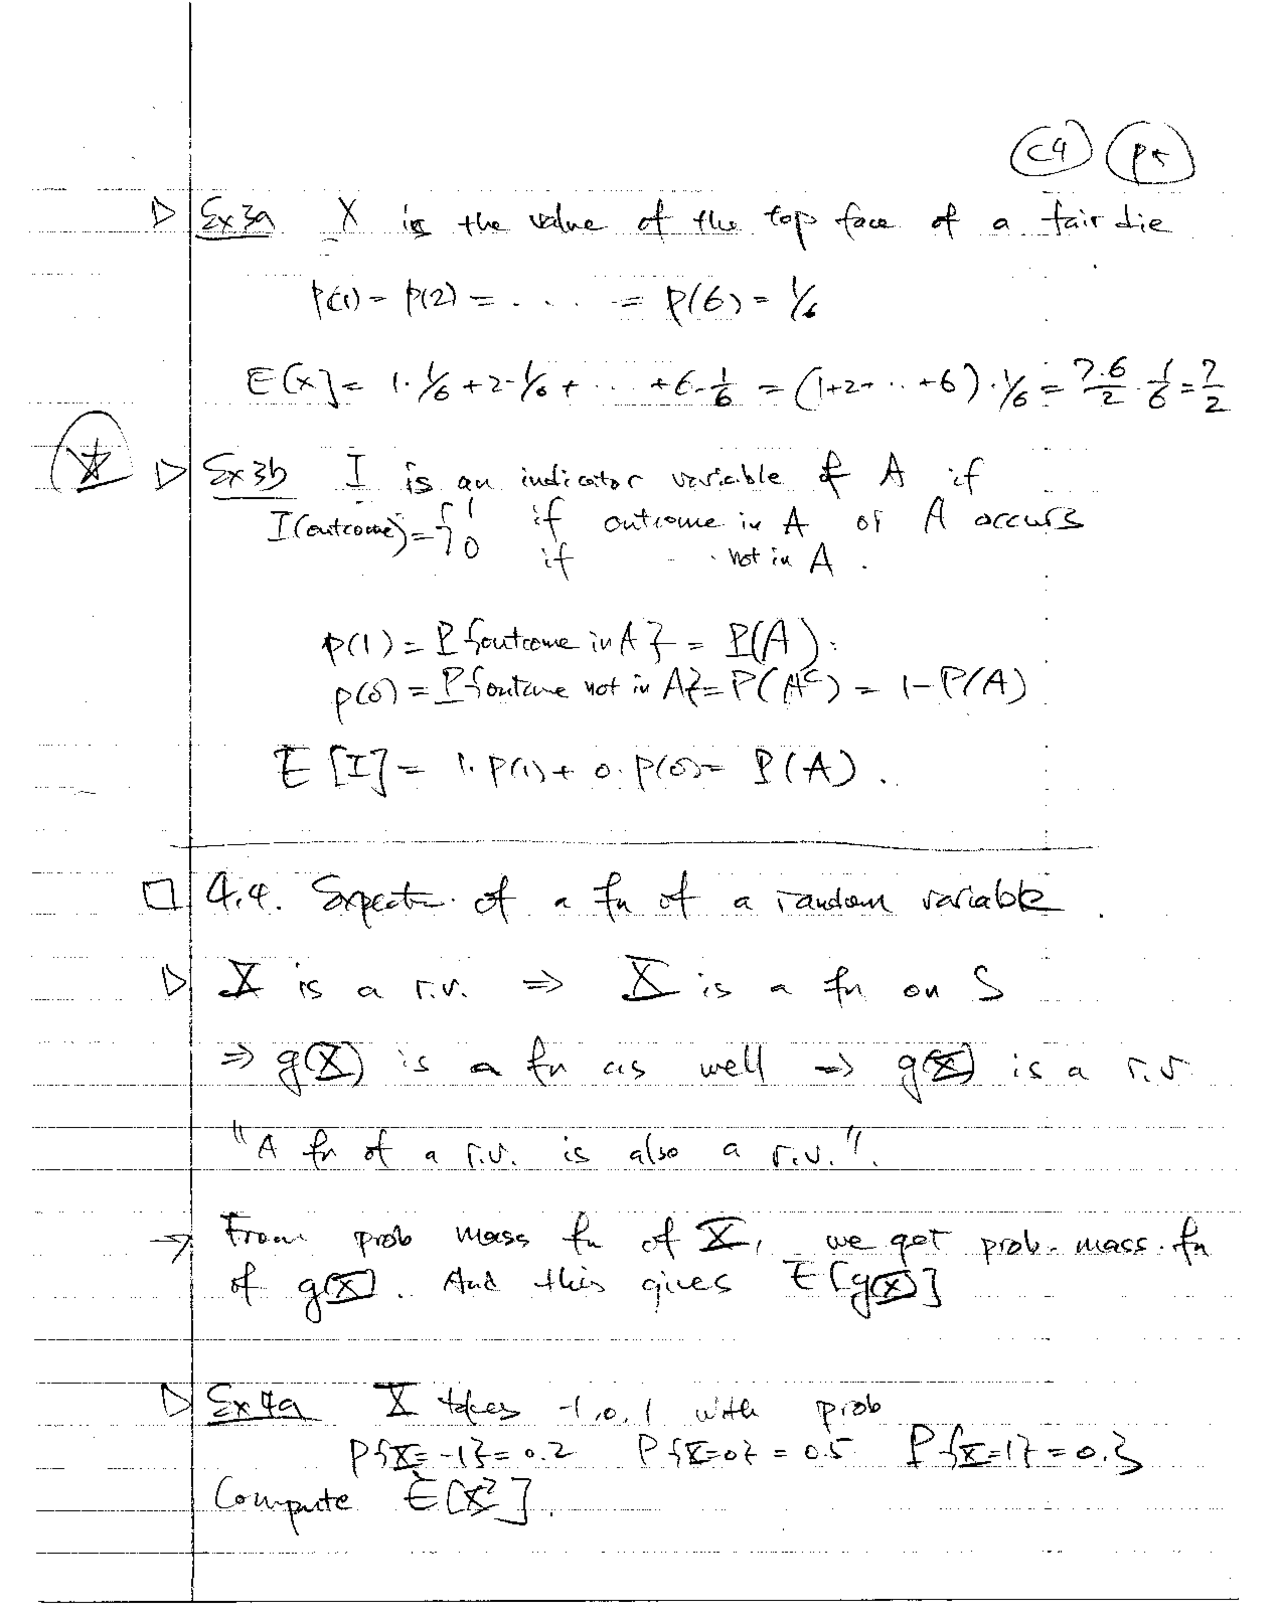 C4 p5
▷ Ex 3a X is the value of the top face of a fair die
p(1) = p(2) = . . . . = p(6) = 1/6
E[X] = 1·1/6 + 2·1/6 + ... + 6·1/6 = (1+2+..+6)·1/6 = 7·6/2 · 1/6 = 7/2
☆ ▷ Ex 3b I is an indicator variable of A if
I(outcome) = { 1 if outcome in A or A occurs
0 if - - · not in A .
p(1) = P{outcome in A} = P(A).
p(0) = P{outcome not in A} = P(A^c) = 1 - P(A)
E[I] = 1·p(1) + 0·p(0) = P(A).
□ 4.4. Expectn. of a fn of a random variable.
▷ X is a r.v. ⇒ X is a fn on S
⇒ g(X) is a fn as well ⇒ g(X) is a r.v.
"A fn of a r.v. is also a r.v.".
→ From prob mass fn of X, we get prob. mass. fn
of g(X). And this gives E[g(X)]
▷ Ex 4a X takes -1,0,1 with prob
P{X=-1}=0.2 P{X=0}=0.5 P{X=1}=0.3
Compute E[X²].